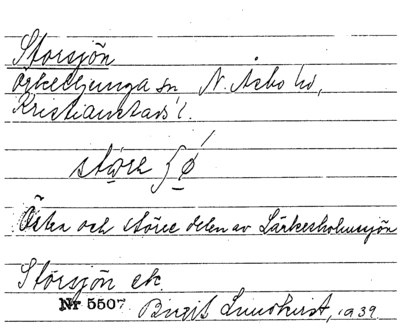 Storsjön
Örkelljunga sn N. Åsbo hd,
Kristianstads l.
störe ʃǿ
Östra och större delen av Lärkesholmssjön
Storsjön ek.
Nr 5507 Birgit Lundkvist, 1939